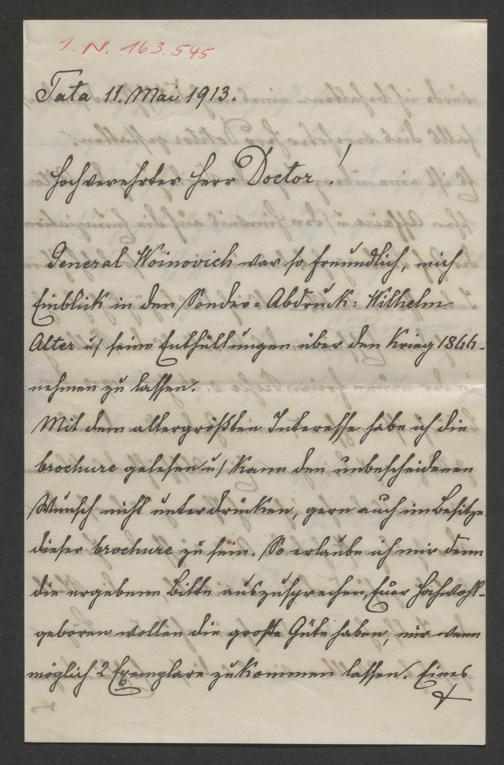 I. N. 163.545
Tata 11. Mai 1913.
Hochverehrter Herr Doctor!
General Woinovich war so freundlich, mich
Einblick in den Sonder=Abdruck: Wilhelm
Alter u/ seine Enthüllungen über den Krieg 1866-
nehmen zu lassen.
Mit dem allergrößten Interesse habe ich die
brochure gelesen u/ kann den unbescheidenen
Wunsch nicht unterdrücken, gern auch im Besitze
dieser brochure zu sein. So erlaube ich mir denn
die ergebene Bitte auszusprechen, Euer Hochwohl-
geboren wollen die große Güte haben, mir wenn
möglich 2 Exemplare zukommen lassen. Eines